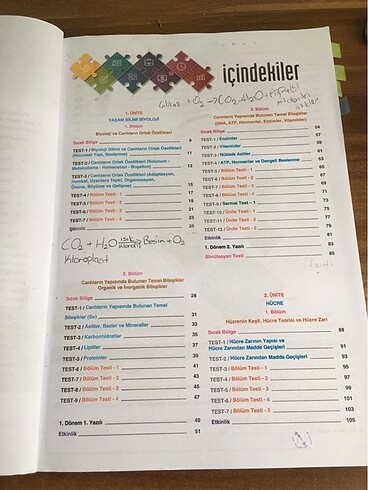 içindekiler
Glikoz + O₂ → CO₂ + H₂O +
1. ÜNİTE
YAŞAM BİLİMİ BİYOLOJİ
1. Bölüm
Biyoloji ve Canlıların Ortak Özellikleri
Sıcak Bölge 8
TEST-1 / Biyoloji Bilimi ve Canlıların Ortak Özellikleri
(Hücresel Yapı, Beslenme) 11
TEST-2 / Canlıların Ortak Özellikleri (Solunum -
Metabolizma - Homeostazi - Boşaltım) 13
TEST-3 / Canlıların Ortak Özellikleri (Adaptasyon,
Hareket, Uyarılara Tepki, Organizasyon,
Üreme, Büyüme ve Gelişme) 15
TEST-4 / Bölüm Testi - 1 17
TEST-5 / Bölüm Testi - 2 19
TEST-6 / Bölüm Testi - 3 21
TEST-7 / Bölüm Testi - 4 23
Etkinlik 25
CO₂ + H₂O ışık klorofil Besin + O₂
Kloroplast
2. Bölüm
Canlıların Yapısında Bulunan Temel Bileşikler
Organik ve İnorganik Bileşikler
Sıcak Bölge 28
TEST-1 / Canlıların Yapısında Bulunan Temel
Bileşikler (Su) 31
TEST-2 / Asitler, Bazlar ve Mineraller 33
TEST-3 / Karbonhidratlar 35
TEST-4 / Lipitler 37
TEST-5 / Proteinler 39
TEST-6 / Bölüm Testi - 1 41
TEST-7 / Bölüm Testi - 2 43
TEST-8 / Bölüm Testi - 3 45
TEST-9 / Bölüm Testi - 4 47
1. Dönem 1. Yazılı 49
Etkinlik 51
3. Bölüm
Canlıların Yapısında Bulunan Temel Bileşikler
(DNA, ATP, Hormonlar, Enzimler, Vitaminler)
Sıcak Bölge 54
TEST-1 / Enzimler 57
TEST-2 / Vitaminler 59
TEST-3 / Nükleik Asitler 61
TEST-4 / ATP, Hormonlar ve Dengeli Beslenme 63
TEST-5 / Bölüm Testi - 1 65
TEST-6 / Bölüm Testi - 2 67
TEST-7 / Bölüm Testi - 3 69
TEST-8 / Bölüm Testi - 4 71
TEST-9 / Sarmal Test - 1 73
TEST-10 / Ünite Testi - 1 75
TEST-11 / Ünite Testi - 2 77
TEST-12 / Ünite Testi - 3 79
Etkinlik 81
1. Dönem 2. Yazılı 83
Simülasyon Testi 85
2. ÜNİTE
HÜCRE
1. Bölüm
Hücrenin Keşfi, Hücre Teorisi ve Hücre Zarı
Sıcak Bölge 88
TEST-1 / Hücre Zarının Yapısı ve
Hücre Zarından Madde Geçişleri 91
TEST-2 / Hücre Zarından Madde Geçişleri 93
TEST-3 / Bölüm Testi - 1 95
TEST-4 / Bölüm Testi - 2 97
TEST-5 / Bölüm Testi - 3 99
TEST-6 / Bölüm Testi - 4 101
TEST-7 / Bölüm Testi - 5 103
Etkinlik 105